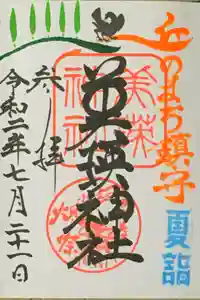 丘のまち鎮守
夏詣
美瑛神社
美瑛神社
参拝
令和二年七月二十一日